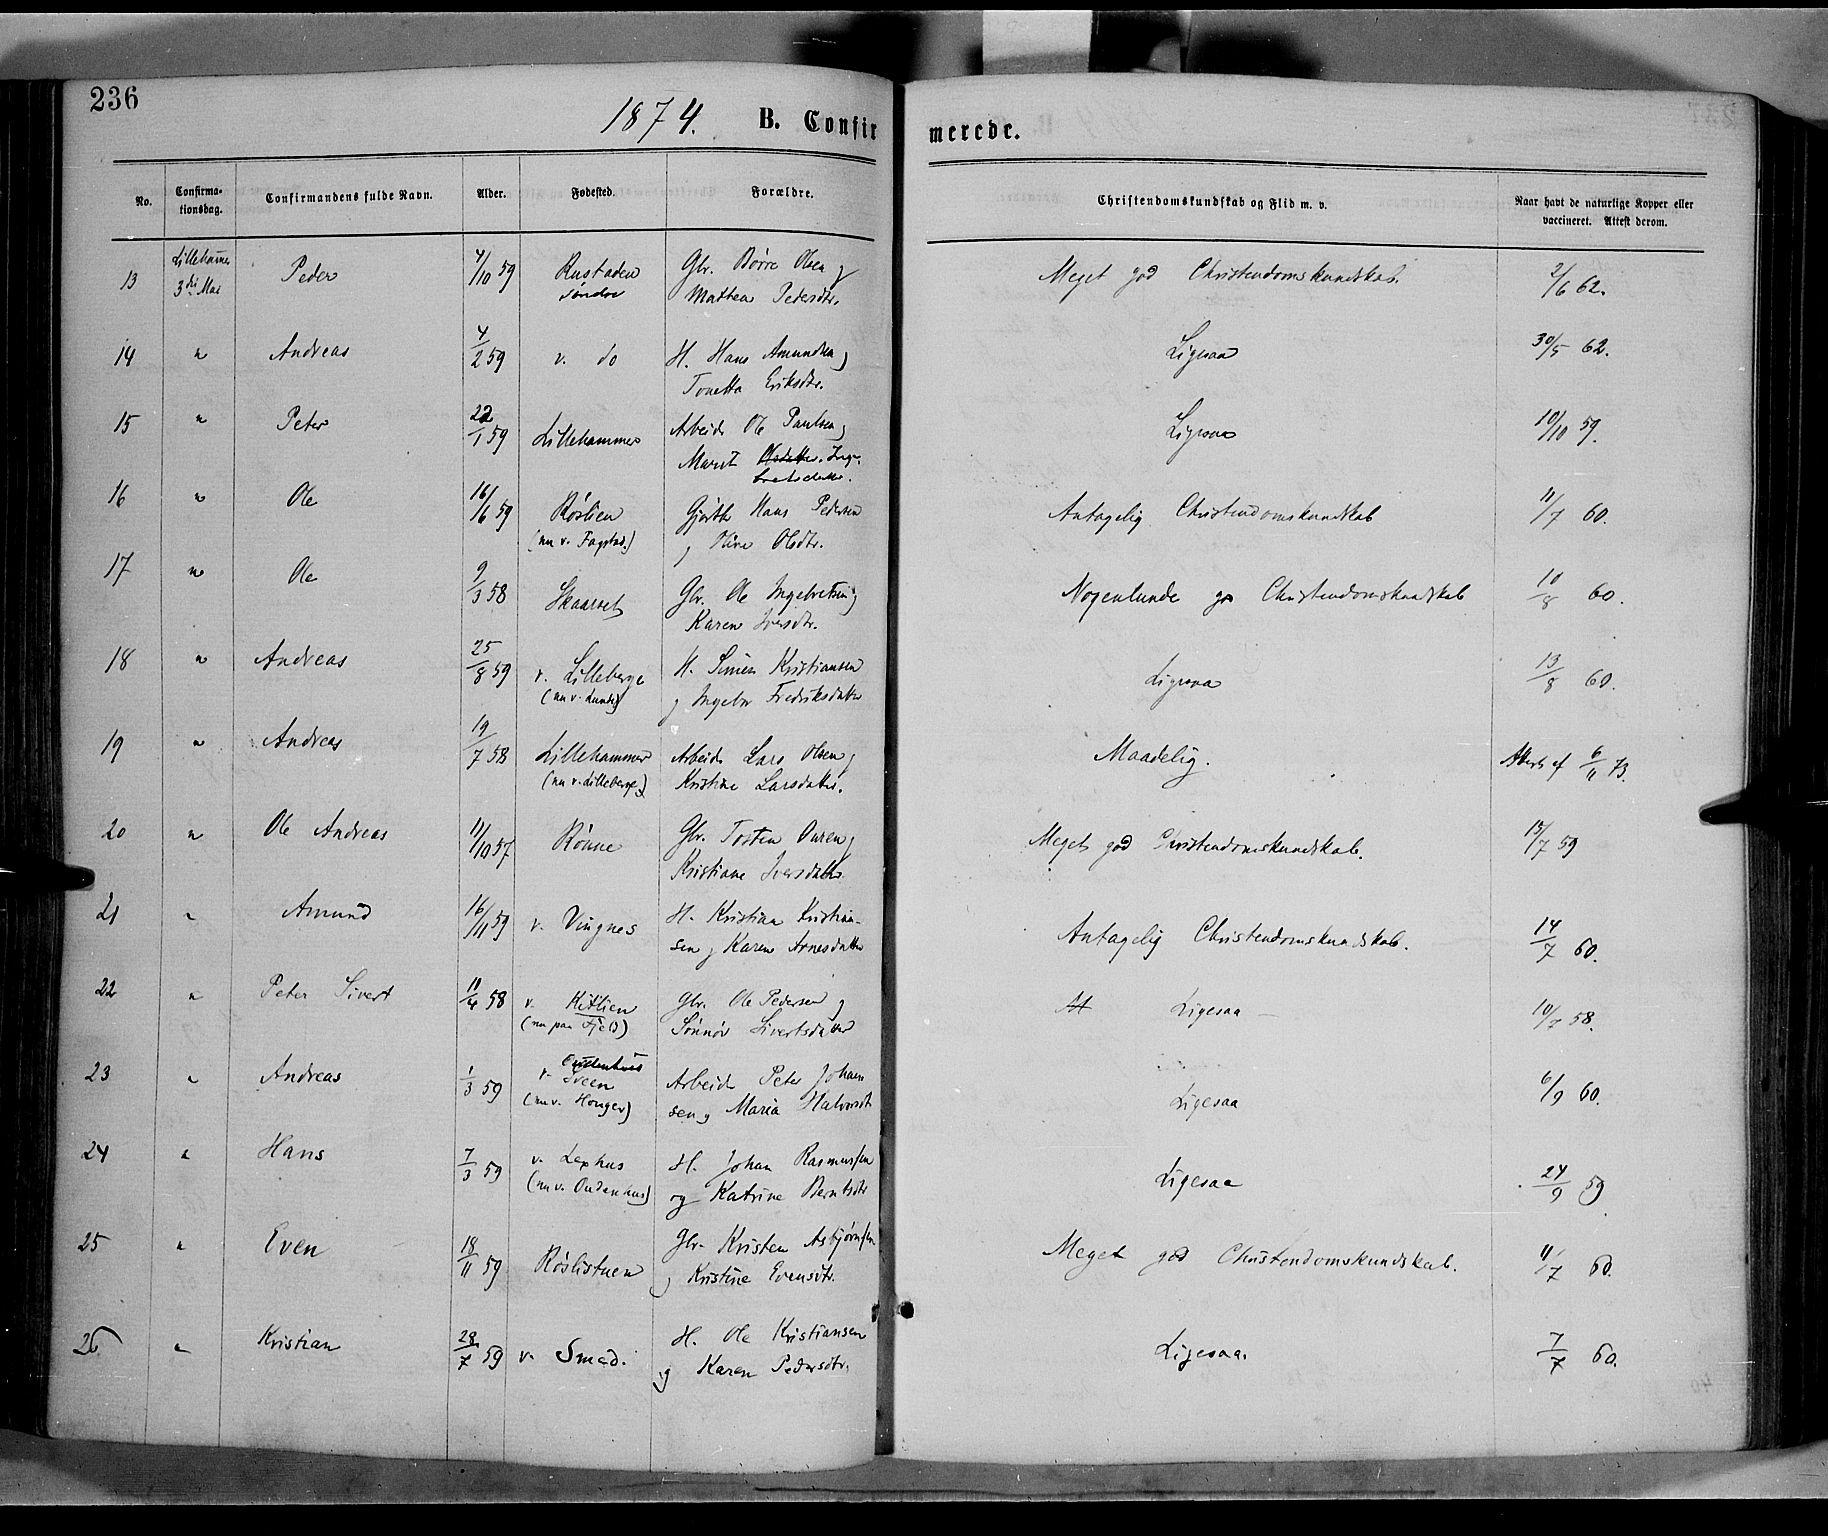 236
1874. B. Confirmerede.
No. Confirmationsdag. Confirmandens fulde Navn. Alder. Fødested. Forældre. Christendomskundskab og Flid m. v. Naar havt de naturlige Kopper eller vaccineret. Attest derom.
13 Lillehammer Peder 4/10 59 Rustaden Gbr. Børre Olsen og Meget god Christendomskundskab. 2/6 62.
3die Mai søndre Mathea Pedersdtr.
14 " Andreas 4/2 59 v. do H. Hans Amundsen og Ligesaa 30/5 62.
Tonetta Eriksdtr.
15 " Peter 22/1 59 Lillehammer Arbeider Ole Paulsen og Ligesaa 10/10 59.
Marit Olsdatter. Inge-
bretsdatter.
16 " Ole 16/6 59 Röslien Hans Pedersen Antagelig Christendomskundskab 11/7 60.
(nu v. Fagstad.) og Olsdtr.
17 " Ole 9/3 58 Skaarset Gbr. Ole Ingebretsen og Nogenlunde god Christendomskundskab 10/8 60.
Karen Iversdtr.
18 " Andreas 25/8 59 v. Lilleberge H. Simen Kristiansen Ligesaa 13/8 60.
(nu v. Lunde) og Ingebor Fredriksdatter
19 " Andreas 19/7 58 Lillehammer Arbeider Lars Olsen og Maadelig. Attest af 6/11 73.
(nu v. Lilleberge) Kristine Larsdatter.
20 " Ole Andreas 11/10 57 Rönne Gbr. Tosten og Meget god Christendomskundskab. 15/7 59
Kristiane Iversdatter
21 " Amund 16/11 59 v. Vingnes H. Kristian Kristian- Antagelig Christendomskundskab. 14/7 60.
sen og Karen Arnesdatter
22 " Peter Sivert 11/4 58 v. Kitlien Gbr. Ole Pedersen og Ligesaa 10/7 58.
(nu paa Fjeld) Sönnöv Sivertsdatter
23 " Andreas 1/3 59 v. Sveen Arbeider Peter Johan Ligesaa 6/9 60.
(nu v. Honger) sen og Maria Halvorsdtr
24 " Hans 7/3 59 v. Lephus H. Johan Rasmussen Ligesaa 24/9 59
(nu v. Oudenhus) og Katrine Berntsdtr
25 " Even 18/11 59 Röslistuen Gbr. Kristen Asbjørnsen Meget god Christendomskundskab. 11/7 60.
og Kristine Evensdtr.
26 " Kristian 28/7 59 v. Smed. H. Ole Kristiansen Ligesaa. 7/7 60.
og Karen Pedersdtr.